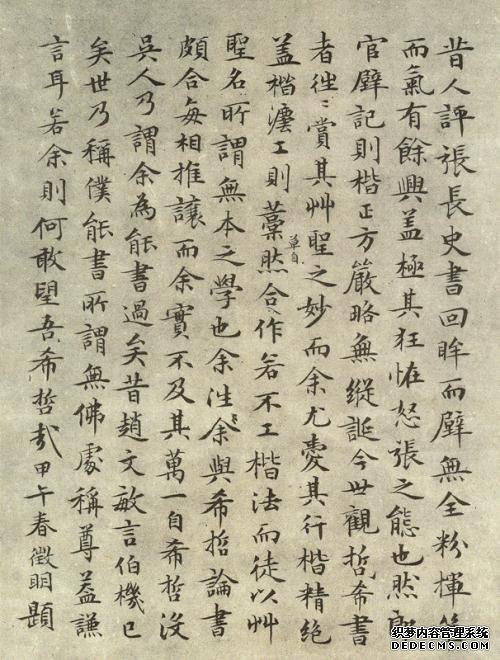 昔人評張長史書回眸而壁無全粉揮筆
而氣有餘興盖極其狂怪怒張之態也然郎
官壁記則楷正方嚴略無縱誕今世觀哲希書
者徃〻賞其艸聖之妙而余尤愛其行楷精絶
盖楷灋工則藁草自然合作若不工楷法而徒以艸
聖名所謂無本之學也余徃余與希哲論書
頗合每相推讓而余實不及其萬一自希哲没
吳人乃謂余為能書過矣昔趙文敏言伯機已
矣世乃稱僕能書所謂無佛處稱尊葢謙
言耳若余則何敢望吾希哲㢤甲午春徵明題
织梦内容管理系统
DEDECMS.COM